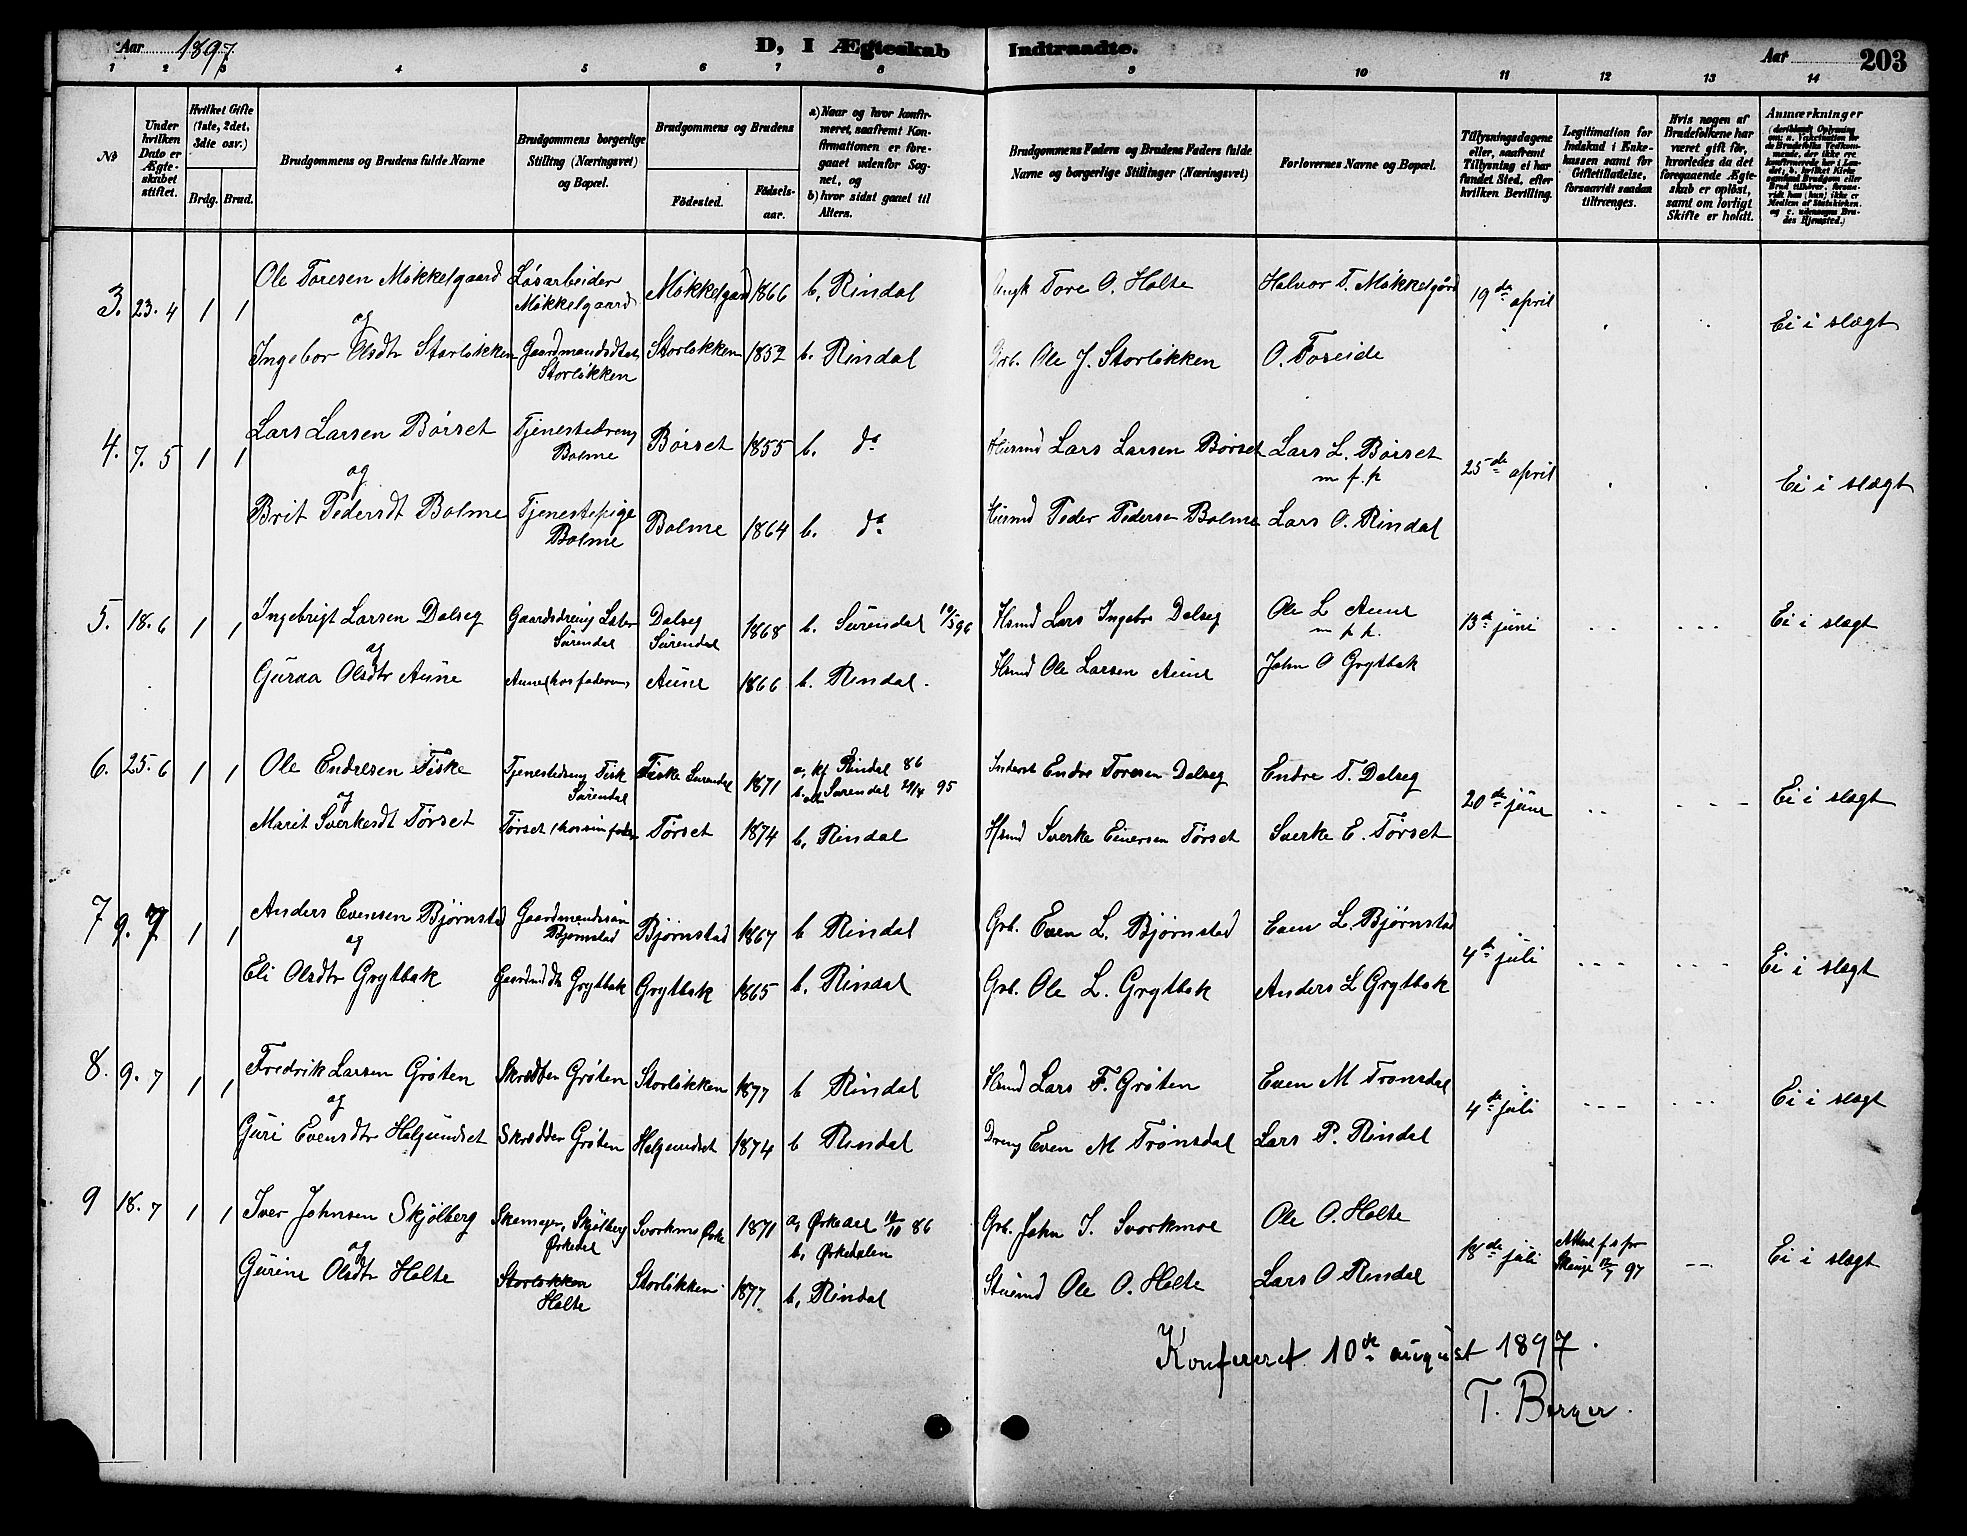 Aar 1897 D, I Ægteskab Indtraadte. Aar 203
1 2 3 4 5 6 7 8 9 10 11 12 13 14
No
Under hvilken Dato er Ægteskabet stiftet.
Hvilket Gifte (1ste, 2det, 3die osv.)
Brdg. Brud.
Brudgommens og Brudens fulde Navne
Brudgommens borgerlige Stilling (Næringsvei) og Bopæl.
Brudgommens og Brudens
Fødested. Fødselsaar.
a) Naar og hvor konfirmeret, saafremt Konfirmationen er foregaaet udenfor Sognet, og
b) hvor sidst gaaet til Alters.
Brudgommens Faders og Brudens Faders fulde Navne og borgerlige Stillinger (Næringsvei)
Forlovernes Navne og Bopæl.
Tillysningsdagene eller, saafremt Tillysning ei har fundet Sted, efter hvilken Bevilling.
Legitimation for Indskud i Enkekassen samt for Giftetilladelse, forsaavidt saadan tiltrænges.
Hvis nogen af Brudefolkene har været gift før, hvorledes da det foregaaende Ægteskab er opløst, samt om lovligt Skifte er holdt.
Anmærkninger
3. 23. 4 1 1 Ole Toresen Møkkelgaard Løsarbeider Møkkelgaard Møkkelgaard 1866 b, Rindal Tore O. Holte Halvor T. Møkkelgård 19de april Ei i slægt
og
Ingebor Olsdtr Storløkken Gaardmandsdtr Storløkken Storløkken 1852 b. Rindal Grb. Ole J. Storløkken O. Foseide
4. 7. 5 1 1 Lars Larsen Børset Tjenestedreng Bolme Børset 1855 b. do Husmd Lars Larsen Børset Lars L. Børset m f. p 25de april Ei i slægt
og
Brit Pedersdt Bolme Tjenestepige Bolme Bolme 1864 b. do Husmd Peder Pedersen Bolme Lars O. Rindal
5. 18. 6 1 1 Ingebrigt Larsen Dalseg Gaardsdreng Sæter Surendal Dalseg Surendal 1868 b. Surendal 10/5 96 Hsmd Lars Ingebr Dalseg Ole L Aune m p p. 13de juni Ei i slægt
og
Guraa Olsdtr Aune Aune (hos faderen) Aune 1866 b. Rindal. Hsmd Ole Larsen Aune John O Grytbak
6. 25. 6 1 1 Ole Endresen Fiske Tjenestedreng Fisk Surendal Fiske Surendal 1871 a, kf Rindal 86 Inderst Endre Toresen Dalseg Endre T. Dalseg 20de june Ei i slægt
b. alt Surendal 29/4 95
og
Marit Sverkesdt Tørset Tørset (hos sin fader Tørset 1874 b, Rindal Hsmd Sverke Einersen Tørset Sverke E. Tørset
7 9. 7 1 1 Anders Evensen Bjørnstad Gaardmandssøn Bjørnstad Bjørnstad 1867 b Rindal Grb. Even L. Bjørnstad Even L. Bjørnstad 4de juli Ei i slægt
og
Eli Olsdtr Grytbak Gaardmd dtr Grytbak Grytbak 1865 b. Rindal Grb. Ole L. Grytbak Anders L Grytbak
8. 9. 7 1 1 Fredrik Larsen Grøten Skrædder Grøten Storløkken 1877 b Rindal Hsmd Lars F. Grøten Even M Trønsdal 4de juli Ei i slægt
og
Guri Evensdtr Halgundset Skrædder Grøten Halgundset 1874 b Rindal Dreng Even M Trønsdal Lars P. Rindal
9 18. 7 1 1 Iver Johnsen Skjølberg Skjølberg Ørkedal Svorkmo Ørke 1871 a, Ørkedal 10/10 86 Grb. John I. Svorkmoe Ole O. Holte 18de juli Attest f. s fr Skauge 12/7 97 Ei i slægt
b, Ørkedalen
og
Gurine Olsdtr Holte Storløkken Holte Storløkken 1877 b, Rindal Stuemd Ole O. Holte Lars O Rindal
Konfereret 10de august 1897.
T. Berger.